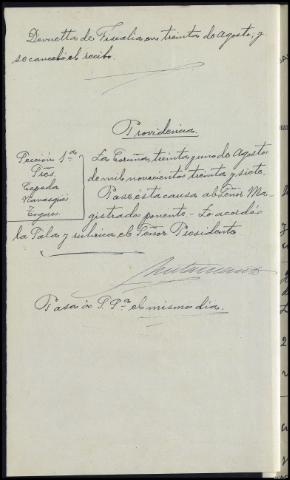 Devuelta de Fiscalía en treinta de Agosto, y
se canceló el recibo.
Providencia.
Sección 1ª
Sres
Cepeda
La Coruña, treinta y uno de Agosto
de mil novecientos treinta y siete.
Pase esta causa al Señor Ma-
gistrado ponente - Lo acordó
la Sala y rubrica el Señor Presidente
Pasa a S. Sª el mismo día.